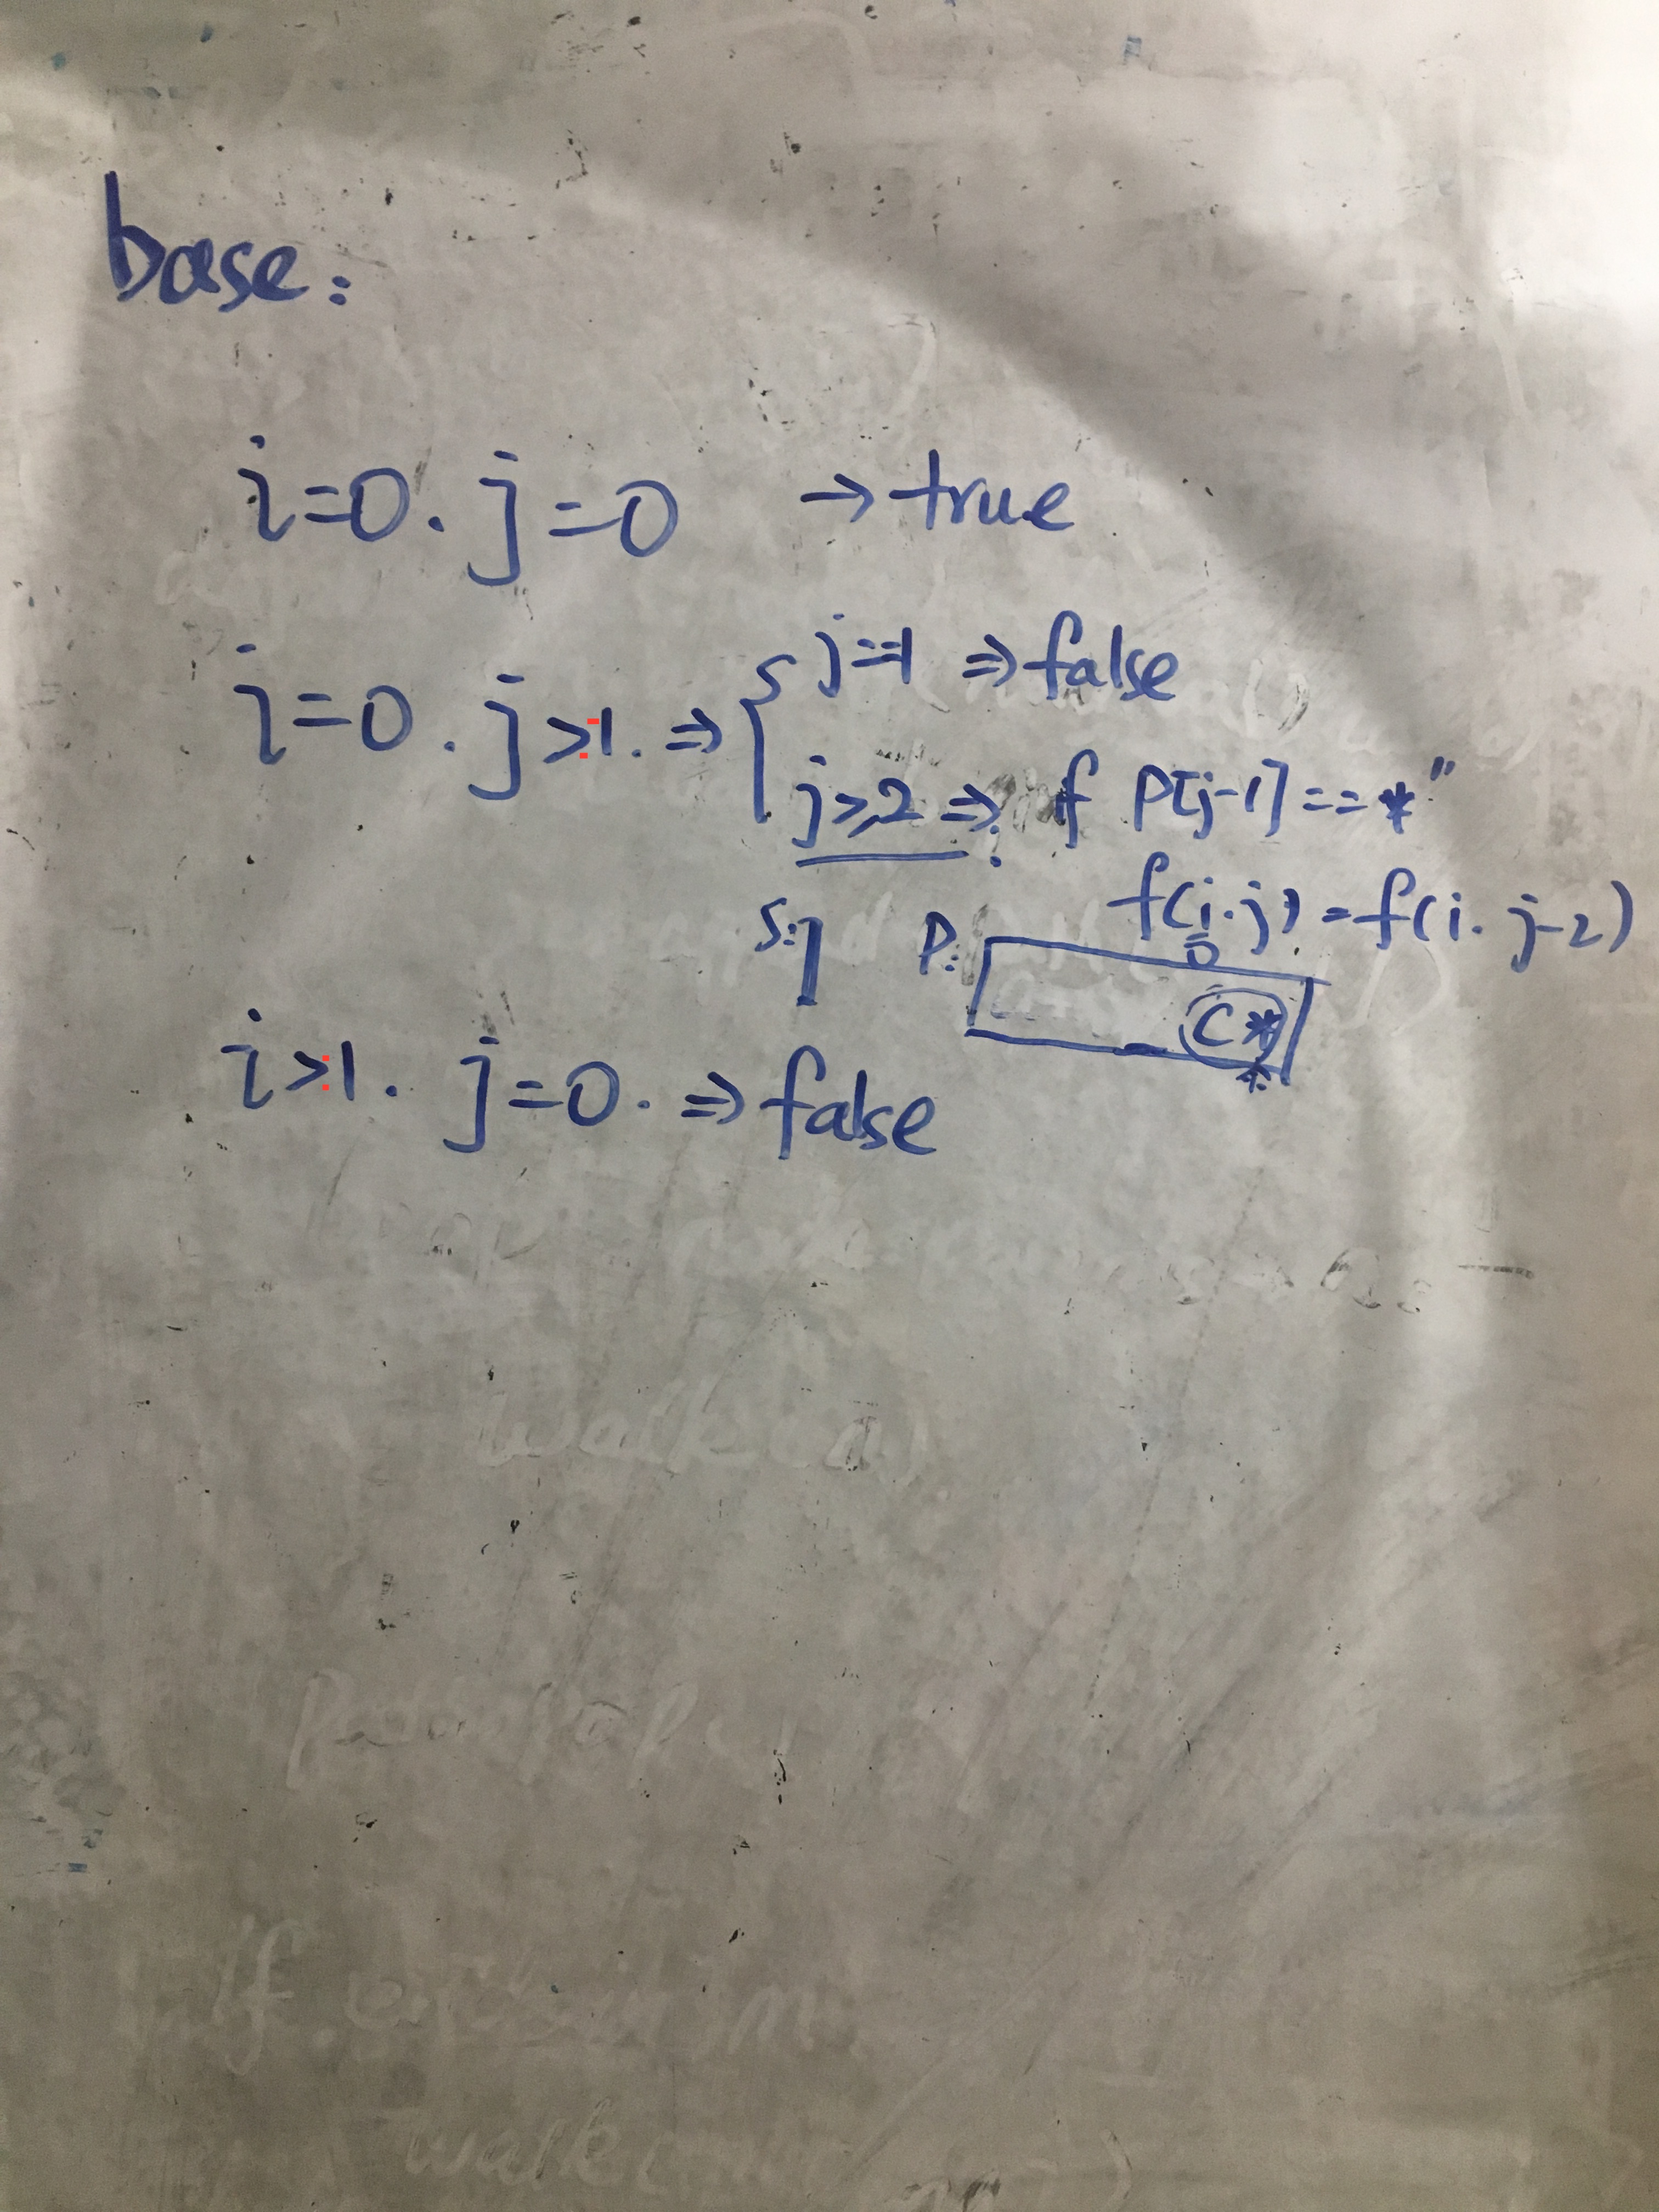 base:
i=0. j=0 → true
i=0. j>1. ⇒ { j=1 ⇒ false
j≥2 ⇒ if P[j-1]==*"
f(i.j) = f(i. j-2)
0
S: P:
C*
*
i>1. j=0. ⇒ false
walk(